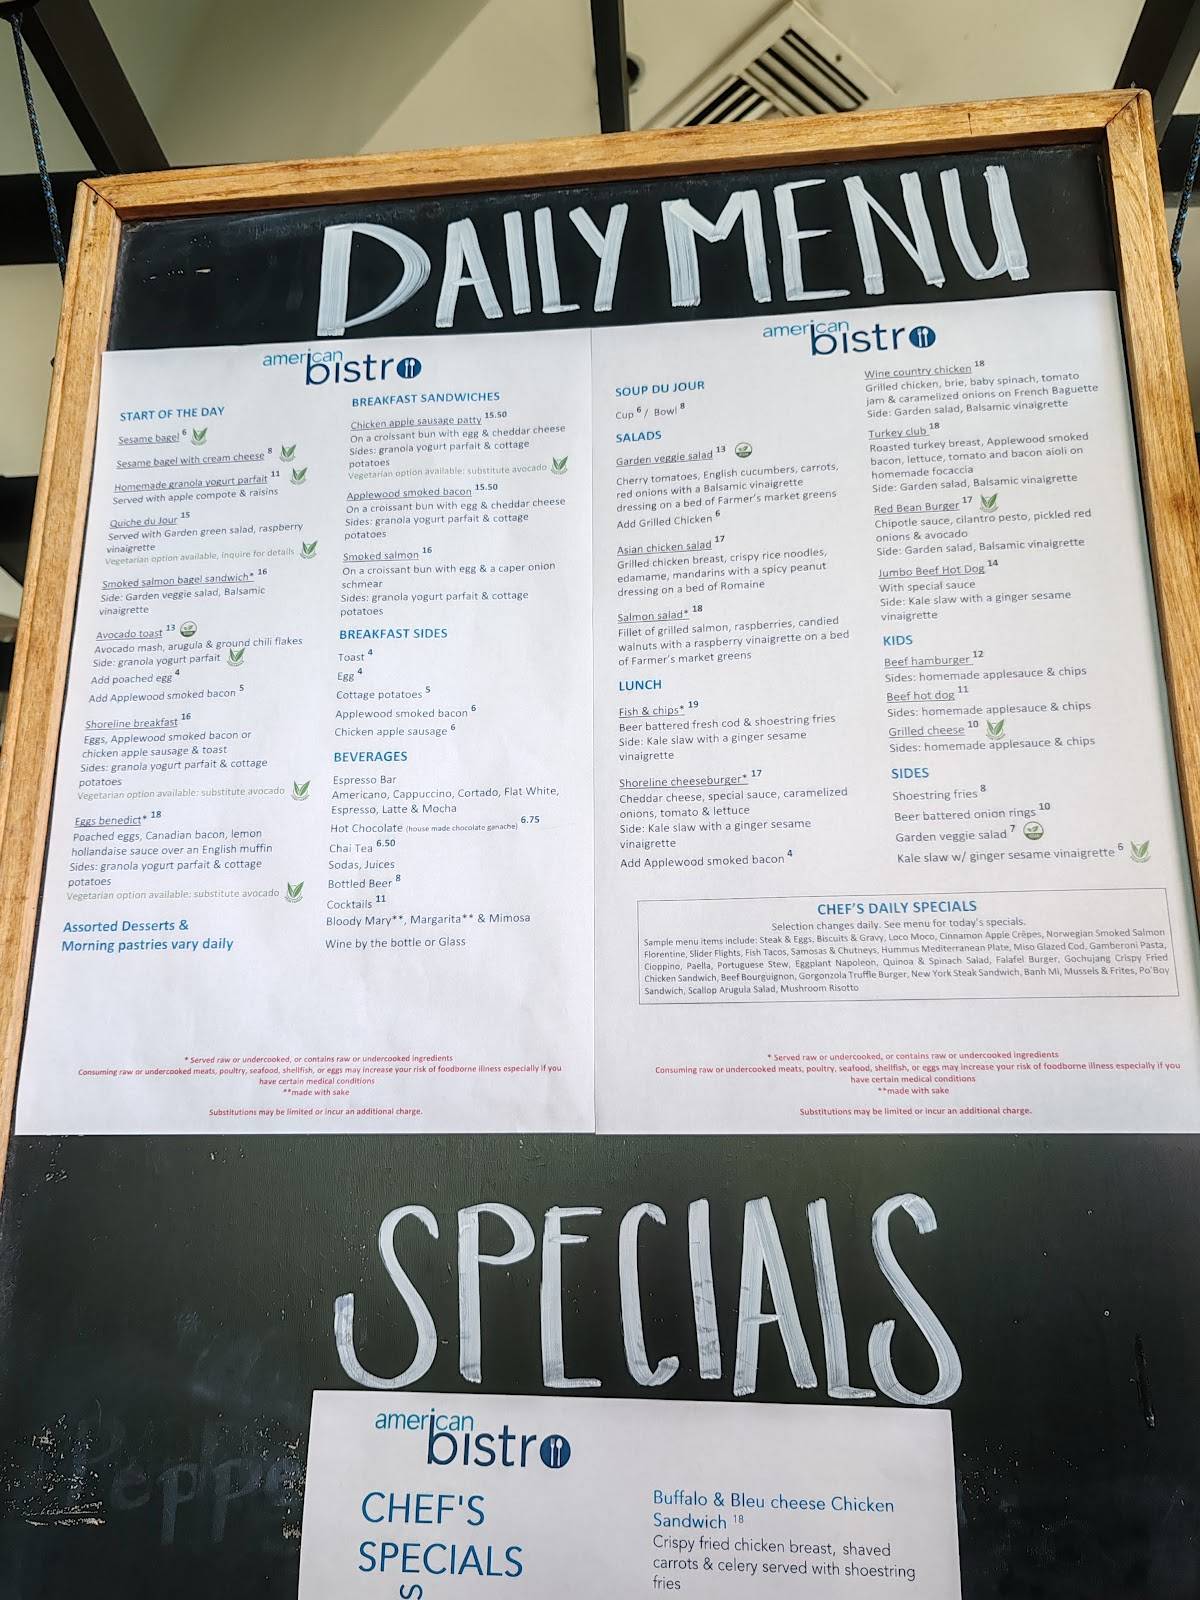 DAILY MENU
american
bistro
START OF THE DAY
Sesame bagel 6
Sesame bagel with cream cheese 8
Homemade granola yogurt parfait 11
Served with apple compote & raisins
Quiche du Jour 15
Served with Garden green salad, raspberry
vinaigrette
Vegetarian option available, inquire for details
Smoked salmon bagel sandwich* 16
Side: Garden veggie salad, Balsamic
vinaigrette
Avocado toast 13
Avocado mash, arugula & ground chili flakes
Side: granola yogurt parfait
Add poached egg 4
Add Applewood smoked bacon 5
Shoreline breakfast 16
Eggs, Applewood smoked bacon or
chicken apple sausage & toast
Sides: granola yogurt parfait & cottage
potatoes
Vegetarian option available: substitute avocado
Eggs benedict* 18
Poached eggs, Canadian bacon, lemon
hollandaise sauce over an English muffin
Sides: granola yogurt parfait & cottage
potatoes
Vegetarian option available: substitute avocado
Assorted Desserts &
Morning pastries vary daily
BREAKFAST SANDWICHES
Chicken apple sausage patty 15.50
On a croissant bun with egg & cheddar cheese
Sides: granola yogurt parfait & cottage
potatoes
Vegetarian option available: substitute avocado
Applewood smoked bacon 15.50
On a croissant bun with egg & cheddar cheese
Sides: granola yogurt parfait & cottage
potatoes
Smoked salmon 16
On a croissant bun with egg & a caper onion
schmear
Sides: granola yogurt parfait & cottage
potatoes
BREAKFAST SIDES
Toast 4
Egg 4
Cottage potatoes 5
Applewood smoked bacon 6
Chicken apple sausage 6
BEVERAGES
Espresso Bar
Americano, Cappuccino, Cortado, Flat White,
Espresso, Latte & Mocha
Hot Chocolate (house made chocolate ganache) 6.75
Chai Tea 6.50
Sodas, Juices
Bottled Beer 8
Cocktails 11
Bloody Mary**, Margarita** & Mimosa
Wine by the bottle or Glass
* Served raw or undercooked, or contains raw or undercooked ingredients
Consuming raw or undercooked meats, poultry, seafood, shellfish, or eggs may increase your risk of foodborne illness especially if you
have certain medical conditions
**made with sake
Substitutions may be limited or incur an additional charge.
american
bistro
SOUP DU JOUR
Cup 6 / Bowl 8
SALADS
Garden veggie salad 13
Cherry tomatoes, English cucumbers, carrots,
red onions with a Balsamic vinaigrette
dressing on a bed of Farmer's market greens
Add Grilled Chicken 6
Asian chicken salad 17
Grilled chicken breast, crispy rice noodles,
edamame, mandarins with a spicy peanut
dressing on a bed of Romaine
Salmon salad* 18
Fillet of grilled salmon, raspberries, candied
walnuts with a raspberry vinaigrette on a bed
of Farmer's market greens
LUNCH
Fish & chips* 19
Beer battered fresh cod & shoestring fries
Side: Kale slaw with a ginger sesame
vinaigrette
Shoreline cheeseburger* 17
Cheddar cheese, special sauce, caramelized
onions, tomato & lettuce
Side: Kale slaw with a ginger sesame
vinaigrette
Add Applewood smoked bacon 4
Wine country chicken 18
Grilled chicken, brie, baby spinach, tomato
jam & caramelized onions on French Baguette
Side: Garden salad, Balsamic vinaigrette
Turkey club 18
Roasted turkey breast, Applewood smoked
bacon, lettuce, tomato and bacon aioli on
homemade focaccia
Side: Garden salad, Balsamic vinaigrette
Red Bean Burger 17
Chipotle sauce, cilantro pesto, pickled red
onions & avocado
Side: Garden salad, Balsamic vinaigrette
Jumbo Beef Hot Dog 14
With special sauce
Side: Kale slaw with a ginger sesame
vinaigrette
KIDS
Beef hamburger 12
Sides: homemade applesauce & chips
Beef hot dog 11
Sides: homemade applesauce & chips
Grilled cheese 10
Sides: homemade applesauce & chips
SIDES
Shoestring fries 8
Beer battered onion rings 10
Garden veggie salad 7
Kale slaw w/ ginger sesame vinaigrette 6
CHEF'S DAILY SPECIALS
Selection changes daily. See menu for today's specials.
Sample menu items include: Steak & Eggs, Biscuits & Gravy, Loco Moco, Cinnamon Apple Crêpes, Norwegian Smoked Salmon
Florentine, Slider Flights, Fish Tacos, Samosas & Chutneys, Hummus Mediterranean Plate, Miso Glazed Cod, Gamberoni Pasta,
Cioppino, Paella, Portuguese Stew, Eggplant Napoleon, Quinoa & Spinach Salad, Falafel Burger, Gochujang Crispy Fried
Chicken Sandwich, Beef Bourguignon, Gorgonzola Truffle Burger, New York Steak Sandwich, Banh Mi, Mussels & Frites, Po'Boy
Sandwich, Scallop Arugula Salad, Mushroom Risotto
* Served raw or undercooked, or contains raw or undercooked ingredients
Consuming raw or undercooked meats, poultry, seafood, shellfish, or eggs may increase your risk of foodborne illness especially if you
have certain medical conditions
**made with sake
Substitutions may be limited or incur an additional charge.
SPECIALS
american
bistro
CHEF'S
SPECIALS
Buffalo & Bleu cheese Chicken
Sandwich 18
Crispy fried chicken breast, shaved
carrots & celery served with shoestring
fries